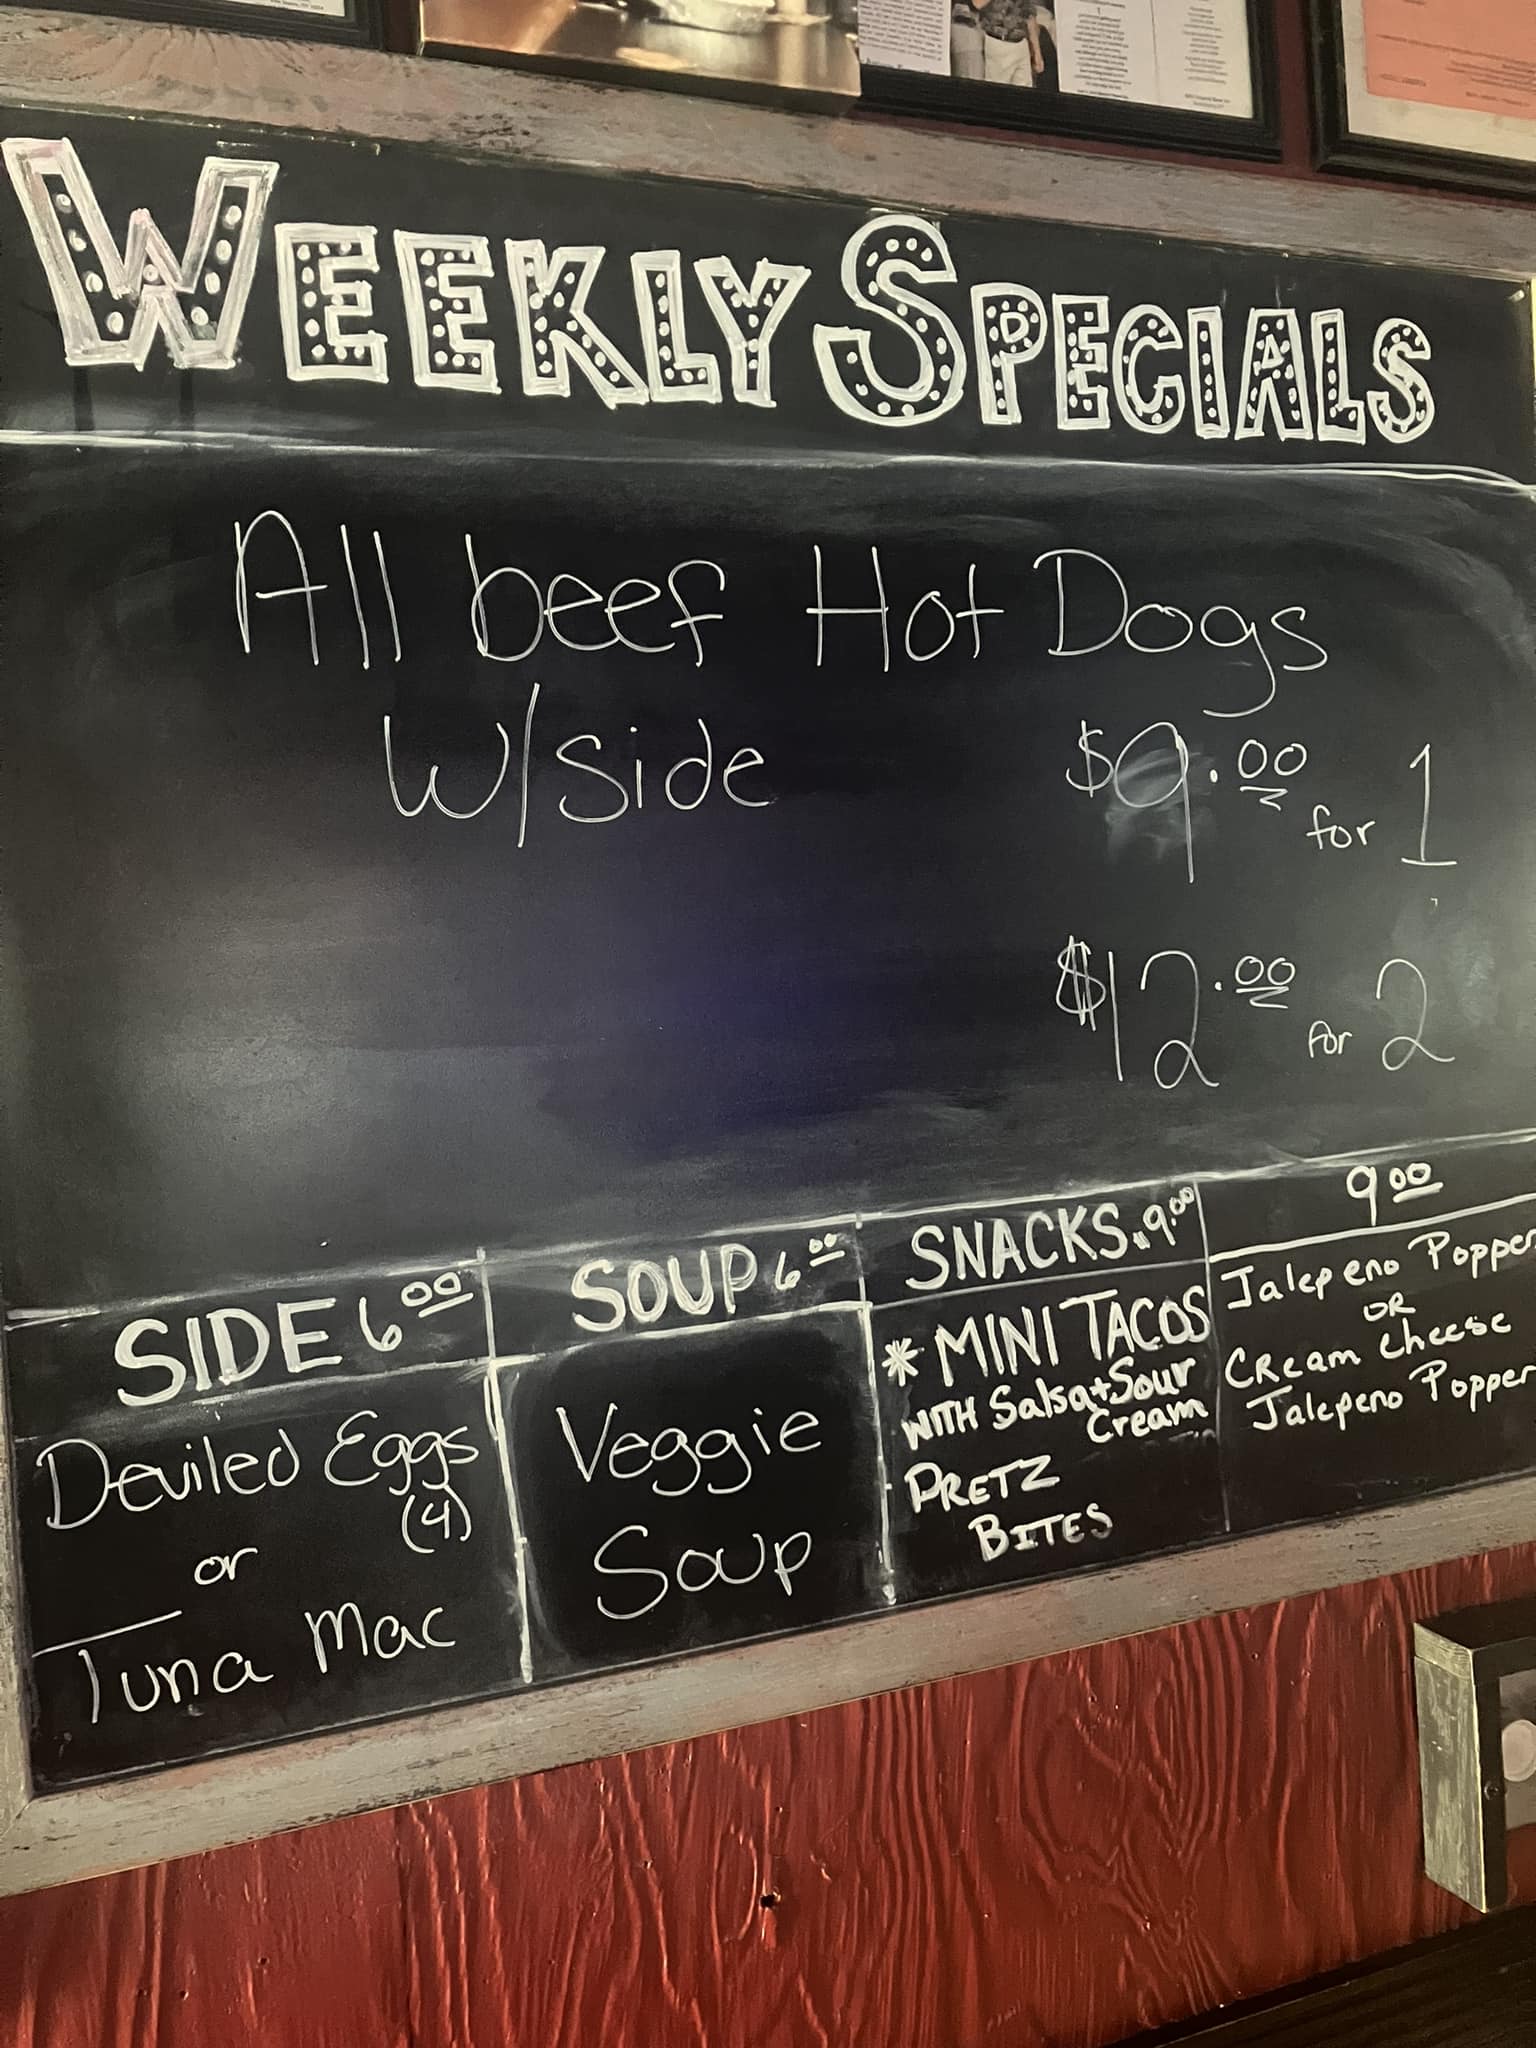 WEEKLY SPECIALS
All beef Hot Dogs
W/side $9.00 for 1
$12.00 for 2
SIDE 6.00
Deviled Eggs
(4)
or
Tuna Mac
SOUP 6.00
Veggie
Soup
SNACKS. 9.00
* MINI TACOS
WITH Salsa + Sour
Cream
PRETZ
BITES
9.00
Jalepeno Popper
OR
CReam cheese
Jalepeno Popper